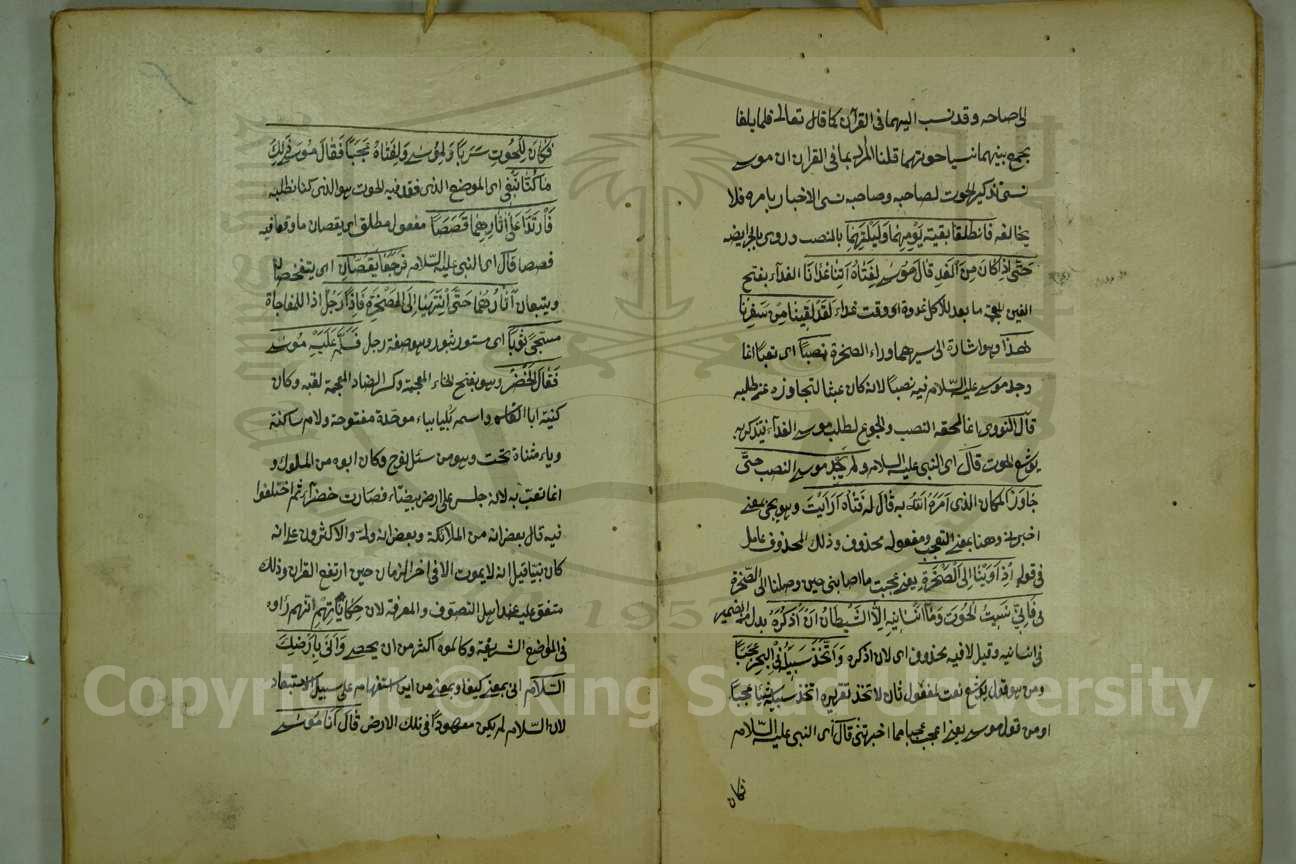 الى صاحه وقد نسب اليهما فى القرآن كما قال تعالى فلما بلغا
مجمع بينهما نسيا حوتهما قلنا المراد بما فى القران ان موسے
نسى تذكير الحوت لصاحبه وصاحبه نسى الاخبار بامره فلا
يخالفه فانطلقا بقية يَوْمِهِمَا وَلَيْلَتِهِمَا بالنصب وروى بالجر ايضه
حَتَّى اِذَا كَانَ مِنَ الْغَدِ قَالَ مُوسٰے لِفَتَاهُ اٰتِنَا غَدَاءَنَا الغدآء بفتح
الغين المعجمة ما يعد للاكل غدوة اى وقت غداء لَقَدْ لَقِينَا مِنْ سَفَرِنَا
هٰذَا وهو اشارة الى سيرهما وراء الصخرة نَصَبًا اى تعبا انما
وجد موسے عليه السّلام فيه نصبا لانه كان عبثا لتجاوزه عن مطلبه
قال النووى انما لحقه النصب والجوع لطلب موسے الغداء فيتذكر به
يوشع الحوت قَالَ اى النبى عليه السلام وَلَمْ يَجِدْ موسے النصب حتَّى
جَاوَزَ المكان الذى اَمَرَهُ اللّٰهُ بِهِ قَالَ لَهُ فَتَاهُ اَرَاَيْتَ وهو يجئ بمعنے
اخبرنے وهنا بمعنے التعجب ومفعوله محذوف وذلك المحذوف عامل
فى قوله اِذْ اَوَيْنَا اِلَى الصَّخْرَةِ يعنے عجبت ما اصابنى حين وصلنا الى الصّخرة
فَاِنِّى نَسِيتُ الْحُوتَ وَمَا اَنْسَانِيهِ اِلَّا الشَّيْطَانُ اَنْ اَذْكُرَهُ بدل من الضمير
فى انسانيه وقيل لا فيه محذوف اى لان اذكره وَاتَّخَذَ سَبِيلَهُ فِى الْبَحْرِ عَجَبًا
وهو من قول يوشع نعت لمفعول ثان لاتخذ تقديره اتخذ سبيله شيئا عجبا
او من قول موسے يعنے اعجب عجبا مما اخبرتنى قَالَ اى النبى عليه السّلام
فكان
فَكَانَ لِلْحُوتِ سَرَبًا وَلِمُوسٰے وَلِفَتَاهُ عَجَبًا فَقَالَ مُوسٰے ذٰلِكَ
مَا كُنَّا نَبْغِى اى الموضع الذى فقد فيه الحوت هو الذى كنا نطلبه
فَارْتَدَّا عَلٰى اٰثَارِهِمَا قَصَصًا مفعول مطلق اى يقصان ما وقعا فيه
قصصا قال اى النبى عليه السّلام فَرَجَعَا يَقُصَّانِ اى يتفحصان
ويتبعان اٰثَارَهُمَا حَتّٰى انْتَهَيَا اِلَى الصَّخْرَةِ فَاِذَا رَجُلٌ اذا للمفاجاة
مسجّى ثَوْبًا اى مستور بثوب وهو صفة رجل فَسَلَّمَ عَلَيْهِ مُوسٰے
فَقَالَ الْخَضِرُ وهو بفتح الخاء المعجمة وكسر الضاد المعجمة لقبه وكان
كنيته ابا العبّاس واسمه بَلْيَا بباء موحّدة مفتوحة ولام ساكنة
وياء مثناة تحت وهو من نسل نوح وكان ابوه من الملوك و
انما لقب به لانه جلس على ارض بيضاء فصارت خضرآء ثم اختلفوا
فيه قال بعض انه من الملائكة وبعض انه ولى والاكثرون على انه
كان نبيا قيل انه لا يموت الا فى اخر الزمان حين ارتفع القران وذلك
متفق عليه عند اهل التصوف والمعرفة لان حكاياتهم انهم راوه
فى المواضع الشريفة وكالموه اكثر من ان يحصے وَاَنّٰى بِاَرْضِكَ
السَّلَامُ انى بمعنے كيف او بمعنے من اين استفهام على سبيل الاستبعاد
لان السّلام لم يكن معهودا فى تلك الارض قَالَ اَنَا مُوسٰے
Copyright © King Saud University
1957